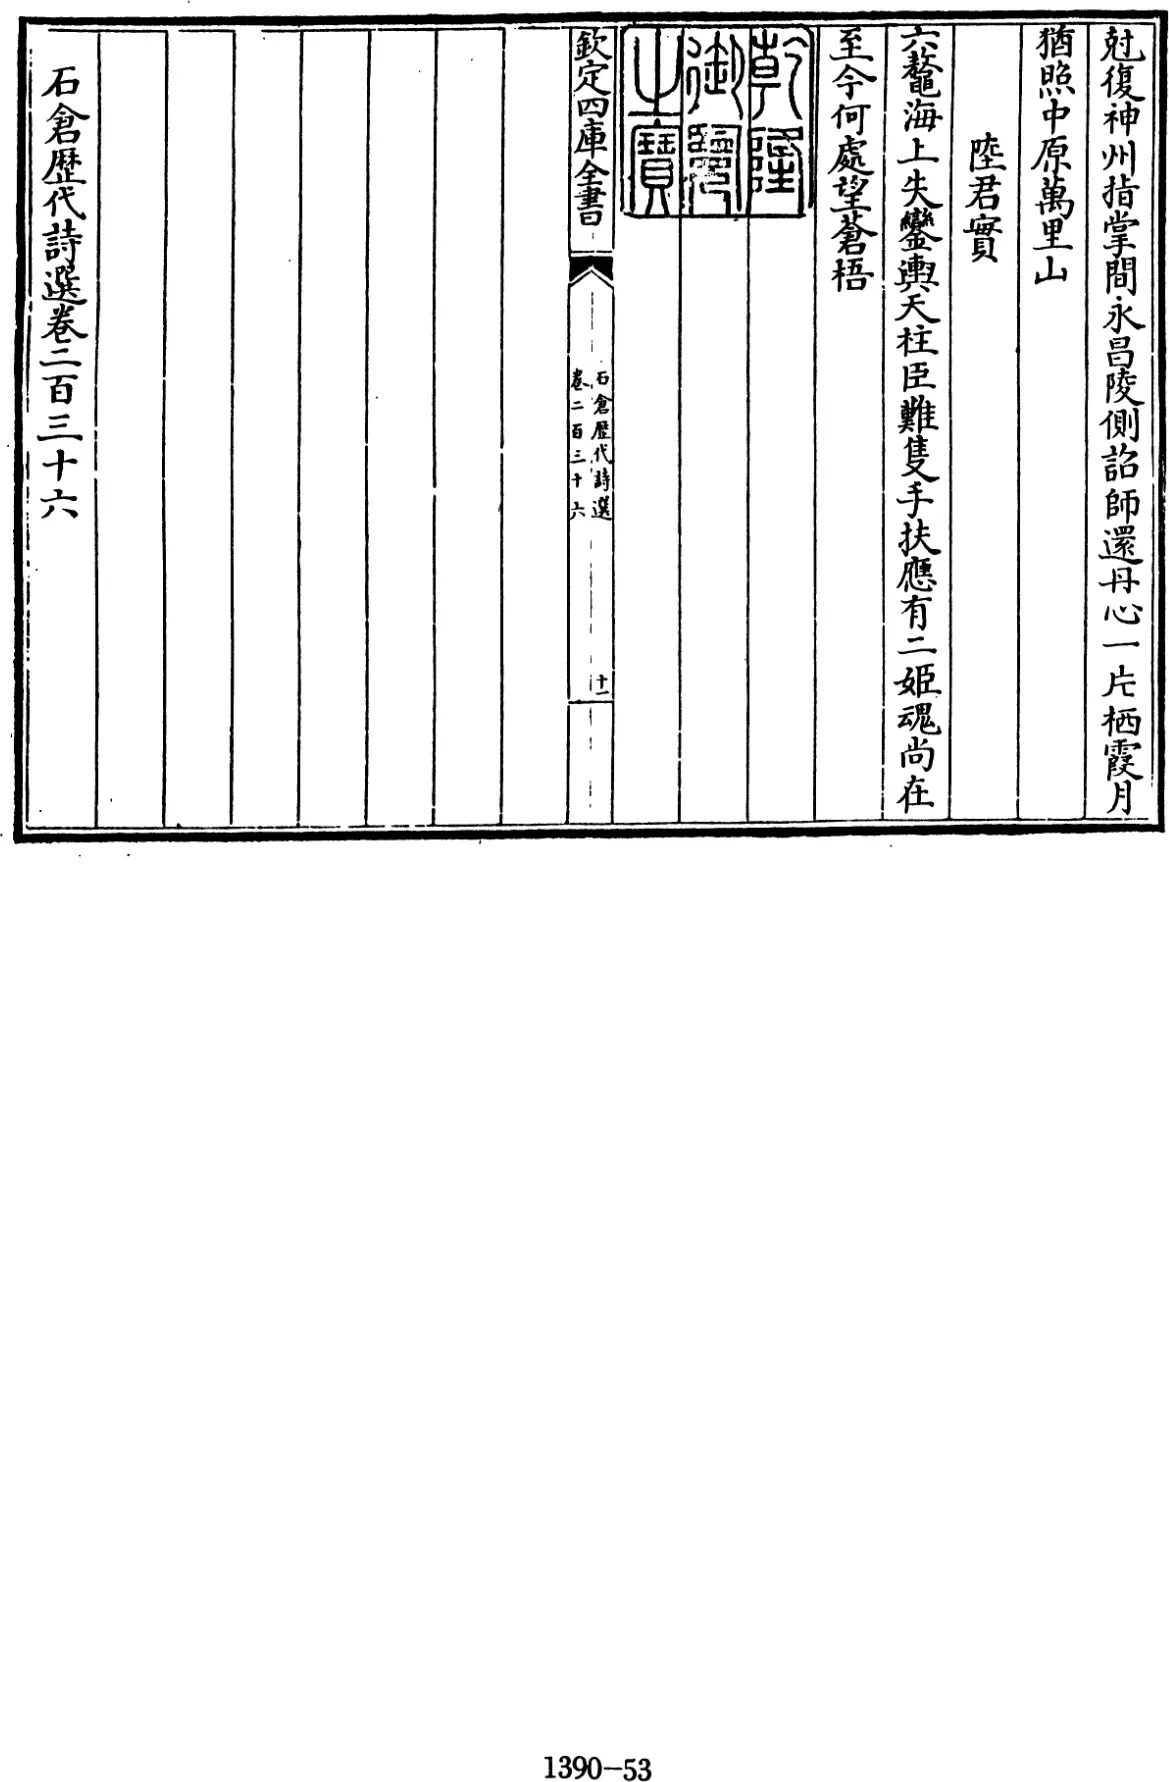 尅復神州指掌間永昌陵側詔師還丹心一片栖霞月
猶照中原萬里山
陸君實
六鼇海上失鑾輿天柱臣難隻手扶應有二姬魂尚在
至今何處望蒼梧
乾隆
御覽
之寶
欽定四庫全書
石倉歷代詩選
卷二百三十六
十一
石倉歷代詩選卷二百三十六
1390-53